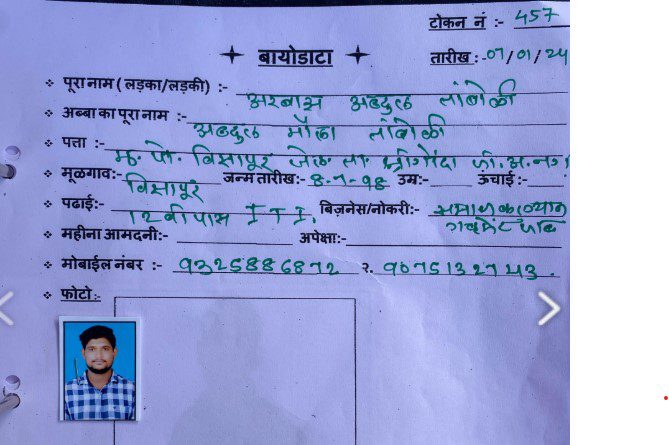 टोकन नं :- 457
बायोडाटा
तारीख :- 07/01/24
पूरा नाम ( लड़का/लड़की) :- अरबाझ अब्दुल तांबोळी
अब्बा का पूरा नाम :- अब्दुल मौला तांबोळी
पत्ता :- मु. पो. विसापूर जेल ता श्रीगोंदा जी. अ.नग
मूळगाव:- विसापूर जन्म तारीख:- 8-7-98 उम्र:- ऊंचाई:-
पढाई:- 12वी पास I T I. बिज़नेस/नोकरी:-
महीना आमदनी:- अपेक्षा:-
मोबाईल नंबर :- 9325886872 २. 9075132743.
फोटो:-